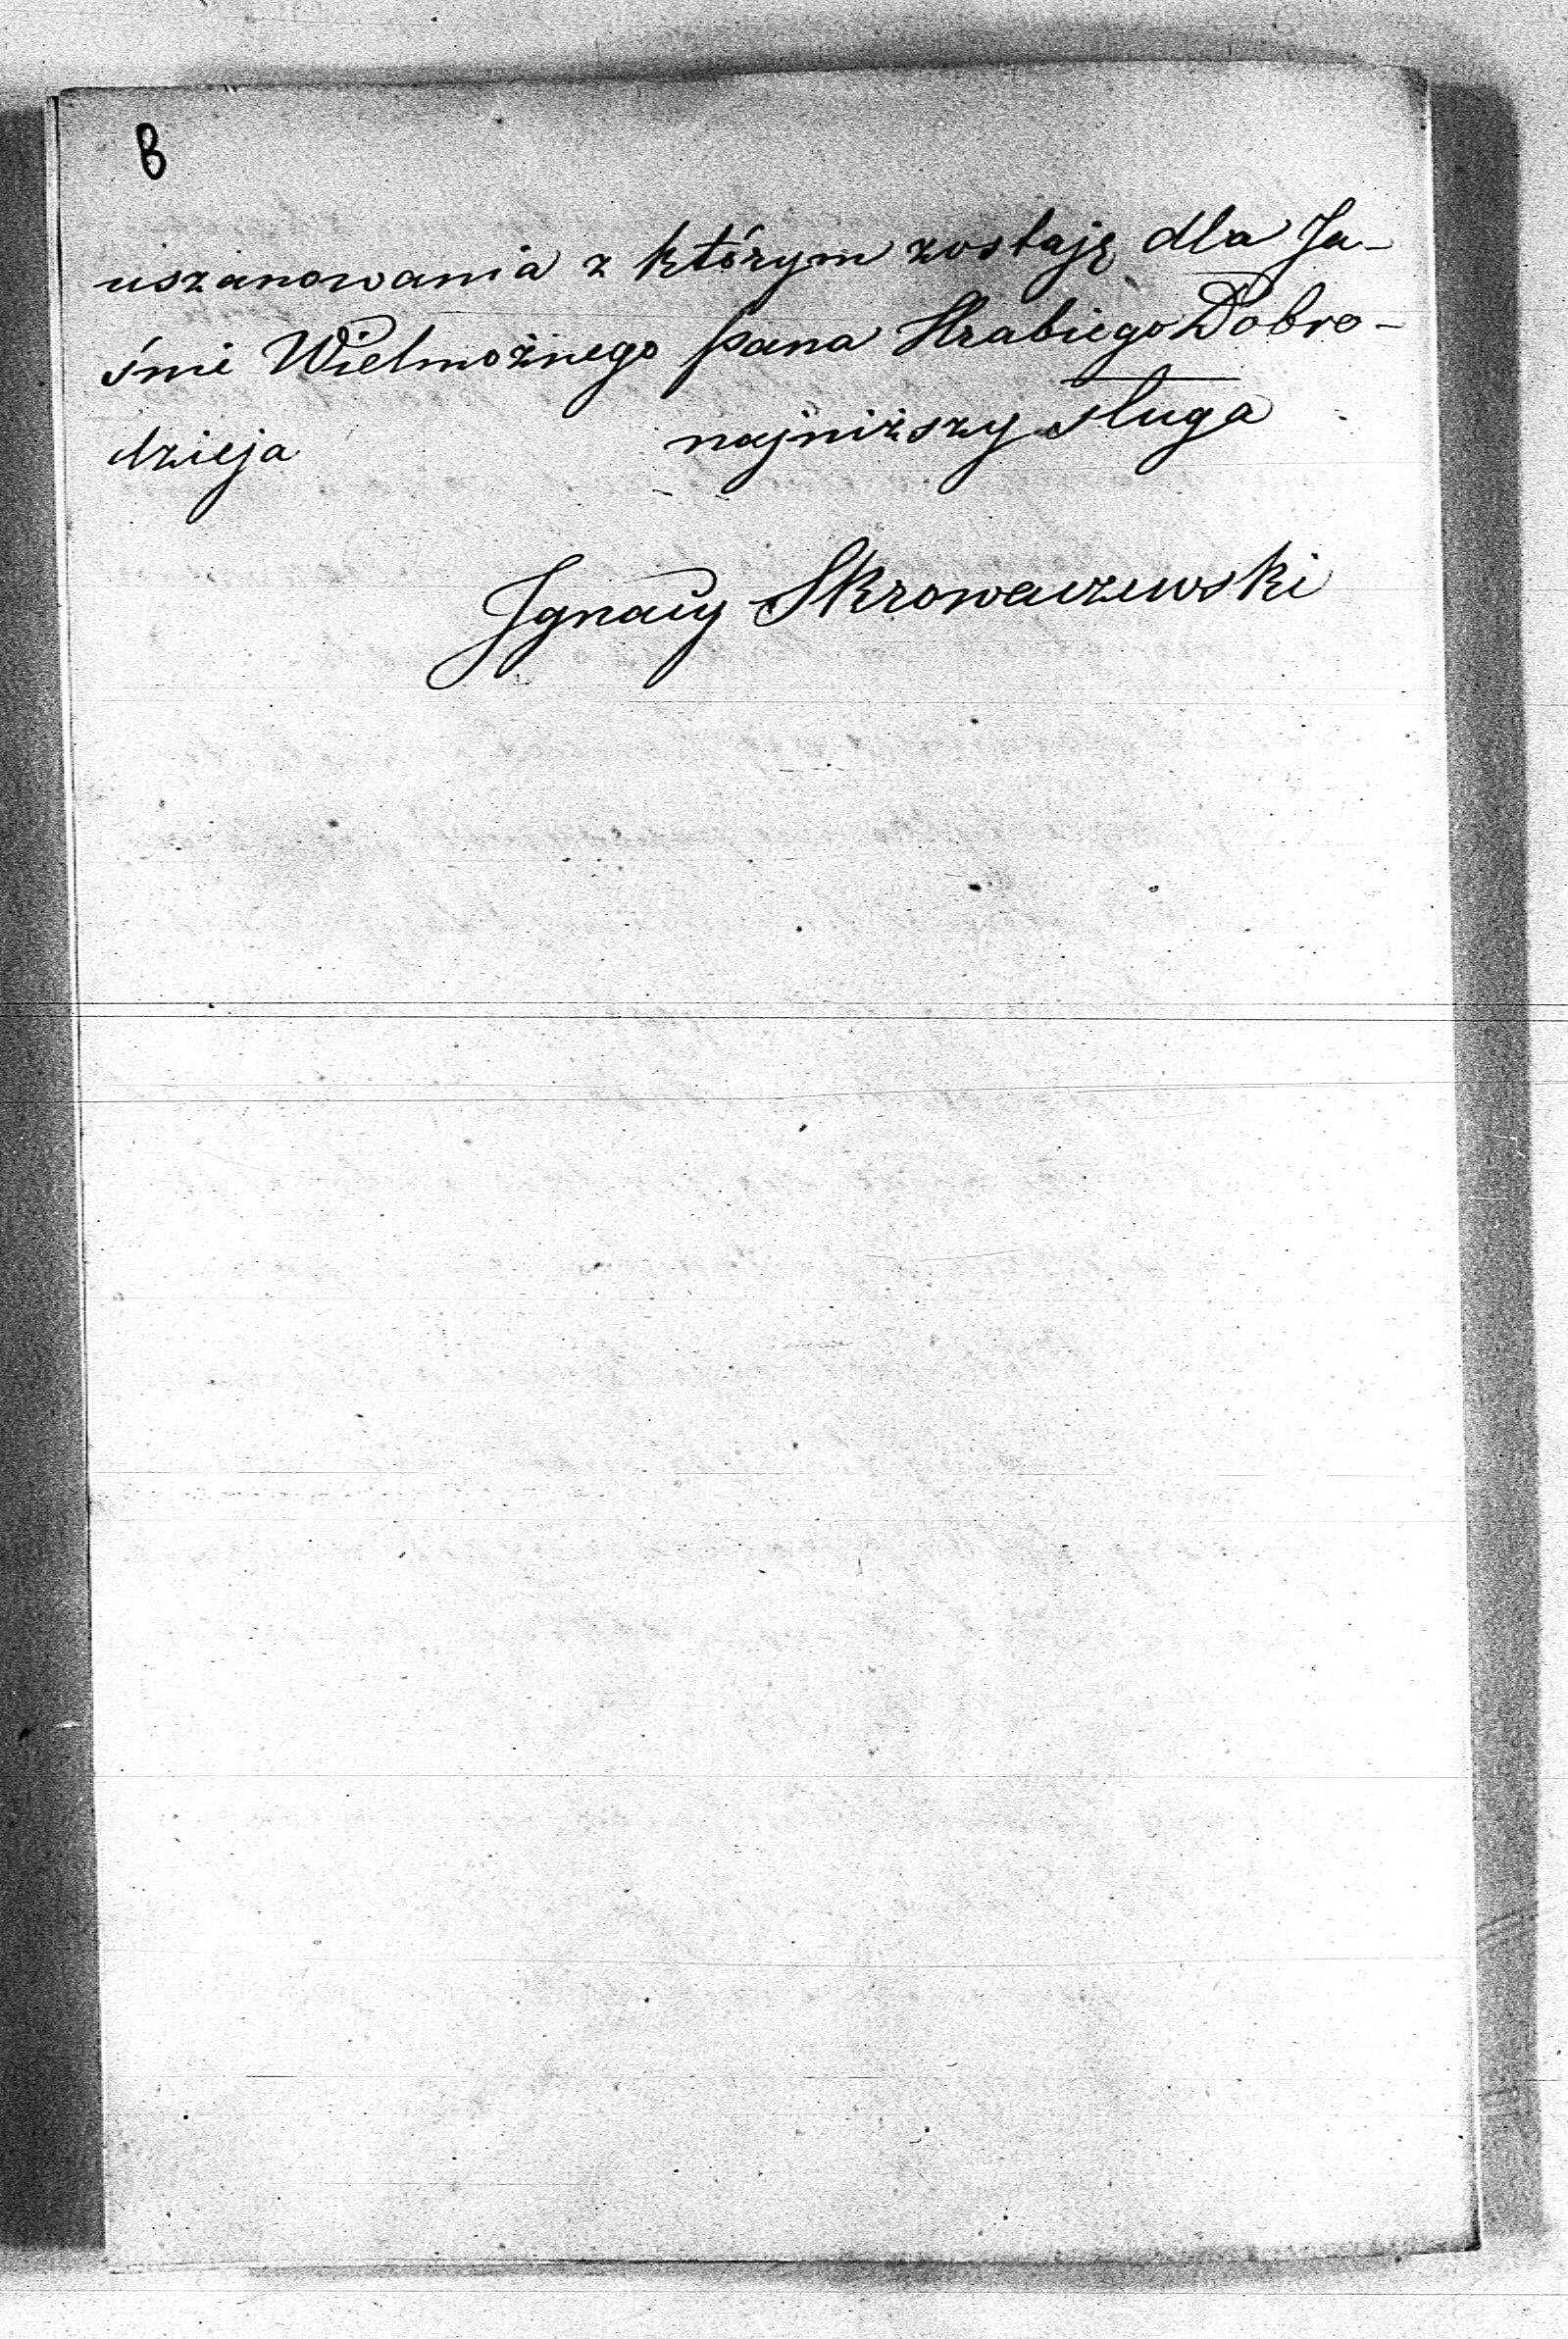 B
uszanowania z którym zostaję dla Ja-
śnie Wielmożnego pana Hrabiego Dobro-
dzieja najniższy sługa
Ignacy Skrowaczewski